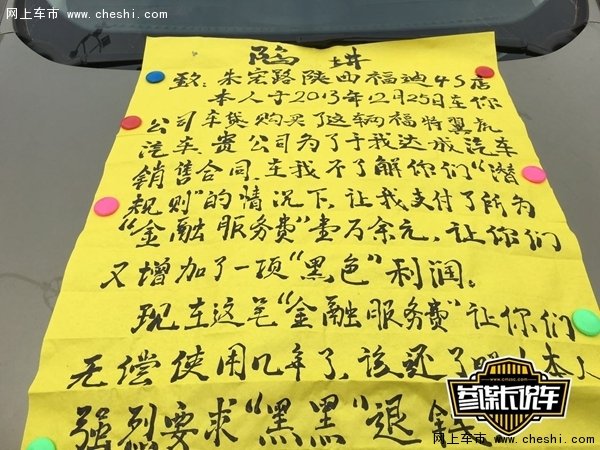 网上车市
www.cheshi.com
陷 井
致：朱宏路陕西福迪4S店
本人于2013年12月25日在你
公司车贷购买了这辆福特翼虎
汽车.贵公司为了于我达成汽车
销售合同.在我不了解你们“潜
规则”的情况下.让我支付了所为
“金融服务费”壹万余元.让你们
又增加了一项“黑色”利润。
现在这笔“金融服务费”让你们
无偿使用几年了.该还了吧 本人
强烈要求“黑黑”退钱
参保长说车
www.cmssc.com
网上车市 www.cheshi.com